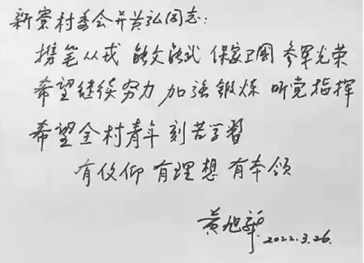 新寮村委会并兴弘同志：
携笔从戎 能文能武 保家卫国 参军光荣
希望继续努力 加强锻炼 听党指挥
希望全村青年 刻苦学习
有信仰 有理想 有本领
黄旭华
2022.3.26.